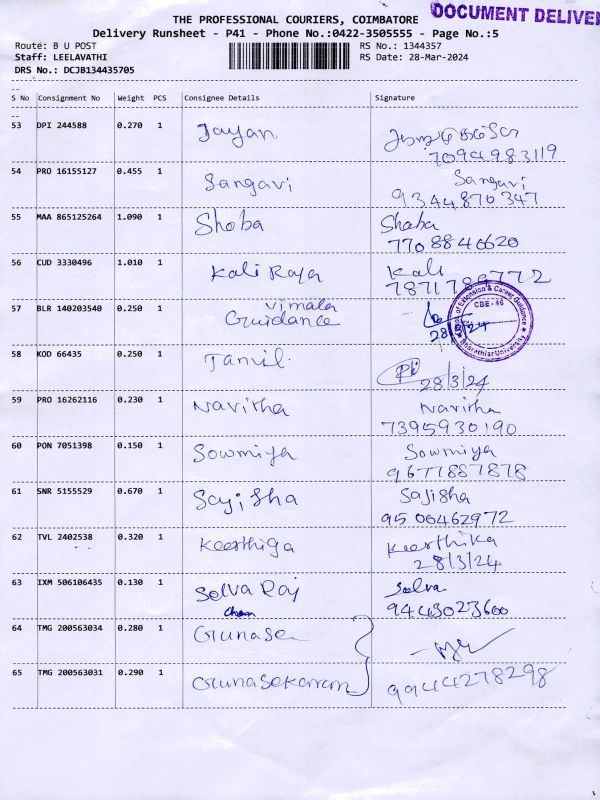 THE PROFESSIONAL COURIERS, COIMBATORE
DOCUMENT DELIVE
Delivery Runsheet - P41 - Phone No.:0422-3505555 - Page No.:5
Route: B U POST
RS No.: 1344357
Staff: LEELAVATHI
RS Date: 28-Mar-2024
DRS No.: DCJB134435705
S No Consignment No Weight PCS Consignee Details Signature
53 DPI 244588 0.270 1 Jayan
7094983119
54 PRO 16155127 0.455 1 Sangavi Sangavi
9344870347
55 MAA 865125264 1.090 1 Shoba Shoba
7708846620
56 CUD 3330496 1.010 1 Kali Raya Kali
7871789772
57 BLR 140203540 0.250 1 Vimala
Guidance
28/3/24
Extension & Career Guidance
CBE-46
Bharathiar University
58 KOD 66435 0.250 1 Tamil.
28/3/24
59 PRO 16262116 0.230 1 Navitha Navitha
7395930190
60 PON 7051398 0.150 1 Sowmiya Sowmiya
9677887878
61 SNR 5155529 0.670 1 Sajisha Sajisha
9500462972
62 TVL 2402538 0.320 1 Keerthiga Keerthika
28/3/24
63 IXM 506106435 0.130 1 Selva Raj Selva
9443023600
64 TMG 200563034 0.280 1 Gunase
65 TMG 200563031 0.290 1 Gunasekaran 9944278298